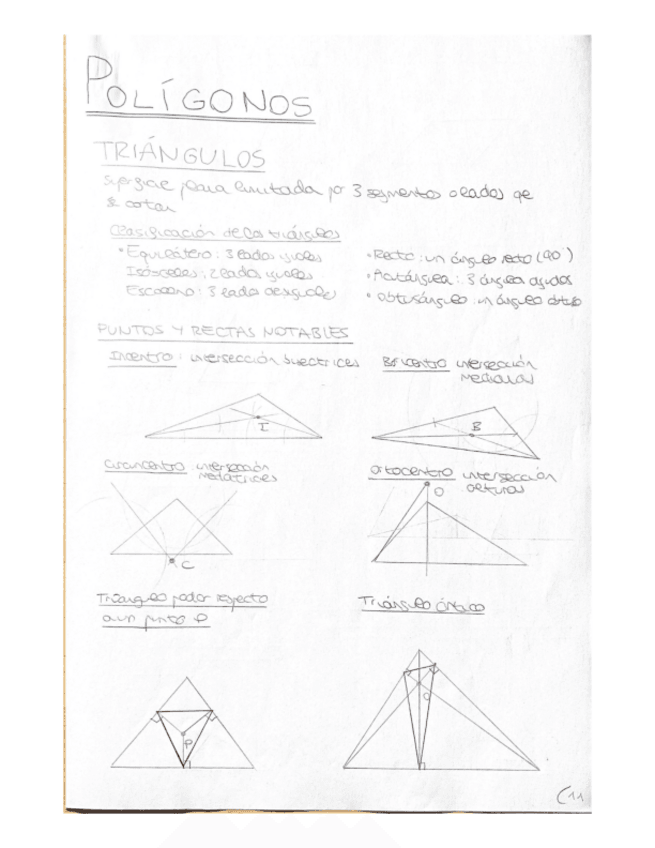 POLÍGONOS
TRIÁNGULOS
Superficie plana limitada por 3 segmentos o lados qe
se cortan
Clasificación de los triángulos
• Equilátero: 3 lados iguales
Isósceles: 2 lados iguales
Escaleno: 3 lados desiguales
• Recto: un ángulo recto (90°)
• Acutángulo: 3 ángulos agudos
• Obtusángulo: un ángulo obtuso
PUNTOS Y RECTAS NOTABLES
Incentro: intersección bisectrices
Baricentro intersección
medianas
I
B
Circuncentro intersección
mediatrices
Ortocentro intersección
alturas
C
O
Triángulo podar respecto
a un punto P
Triángulo órtico
P
O
11